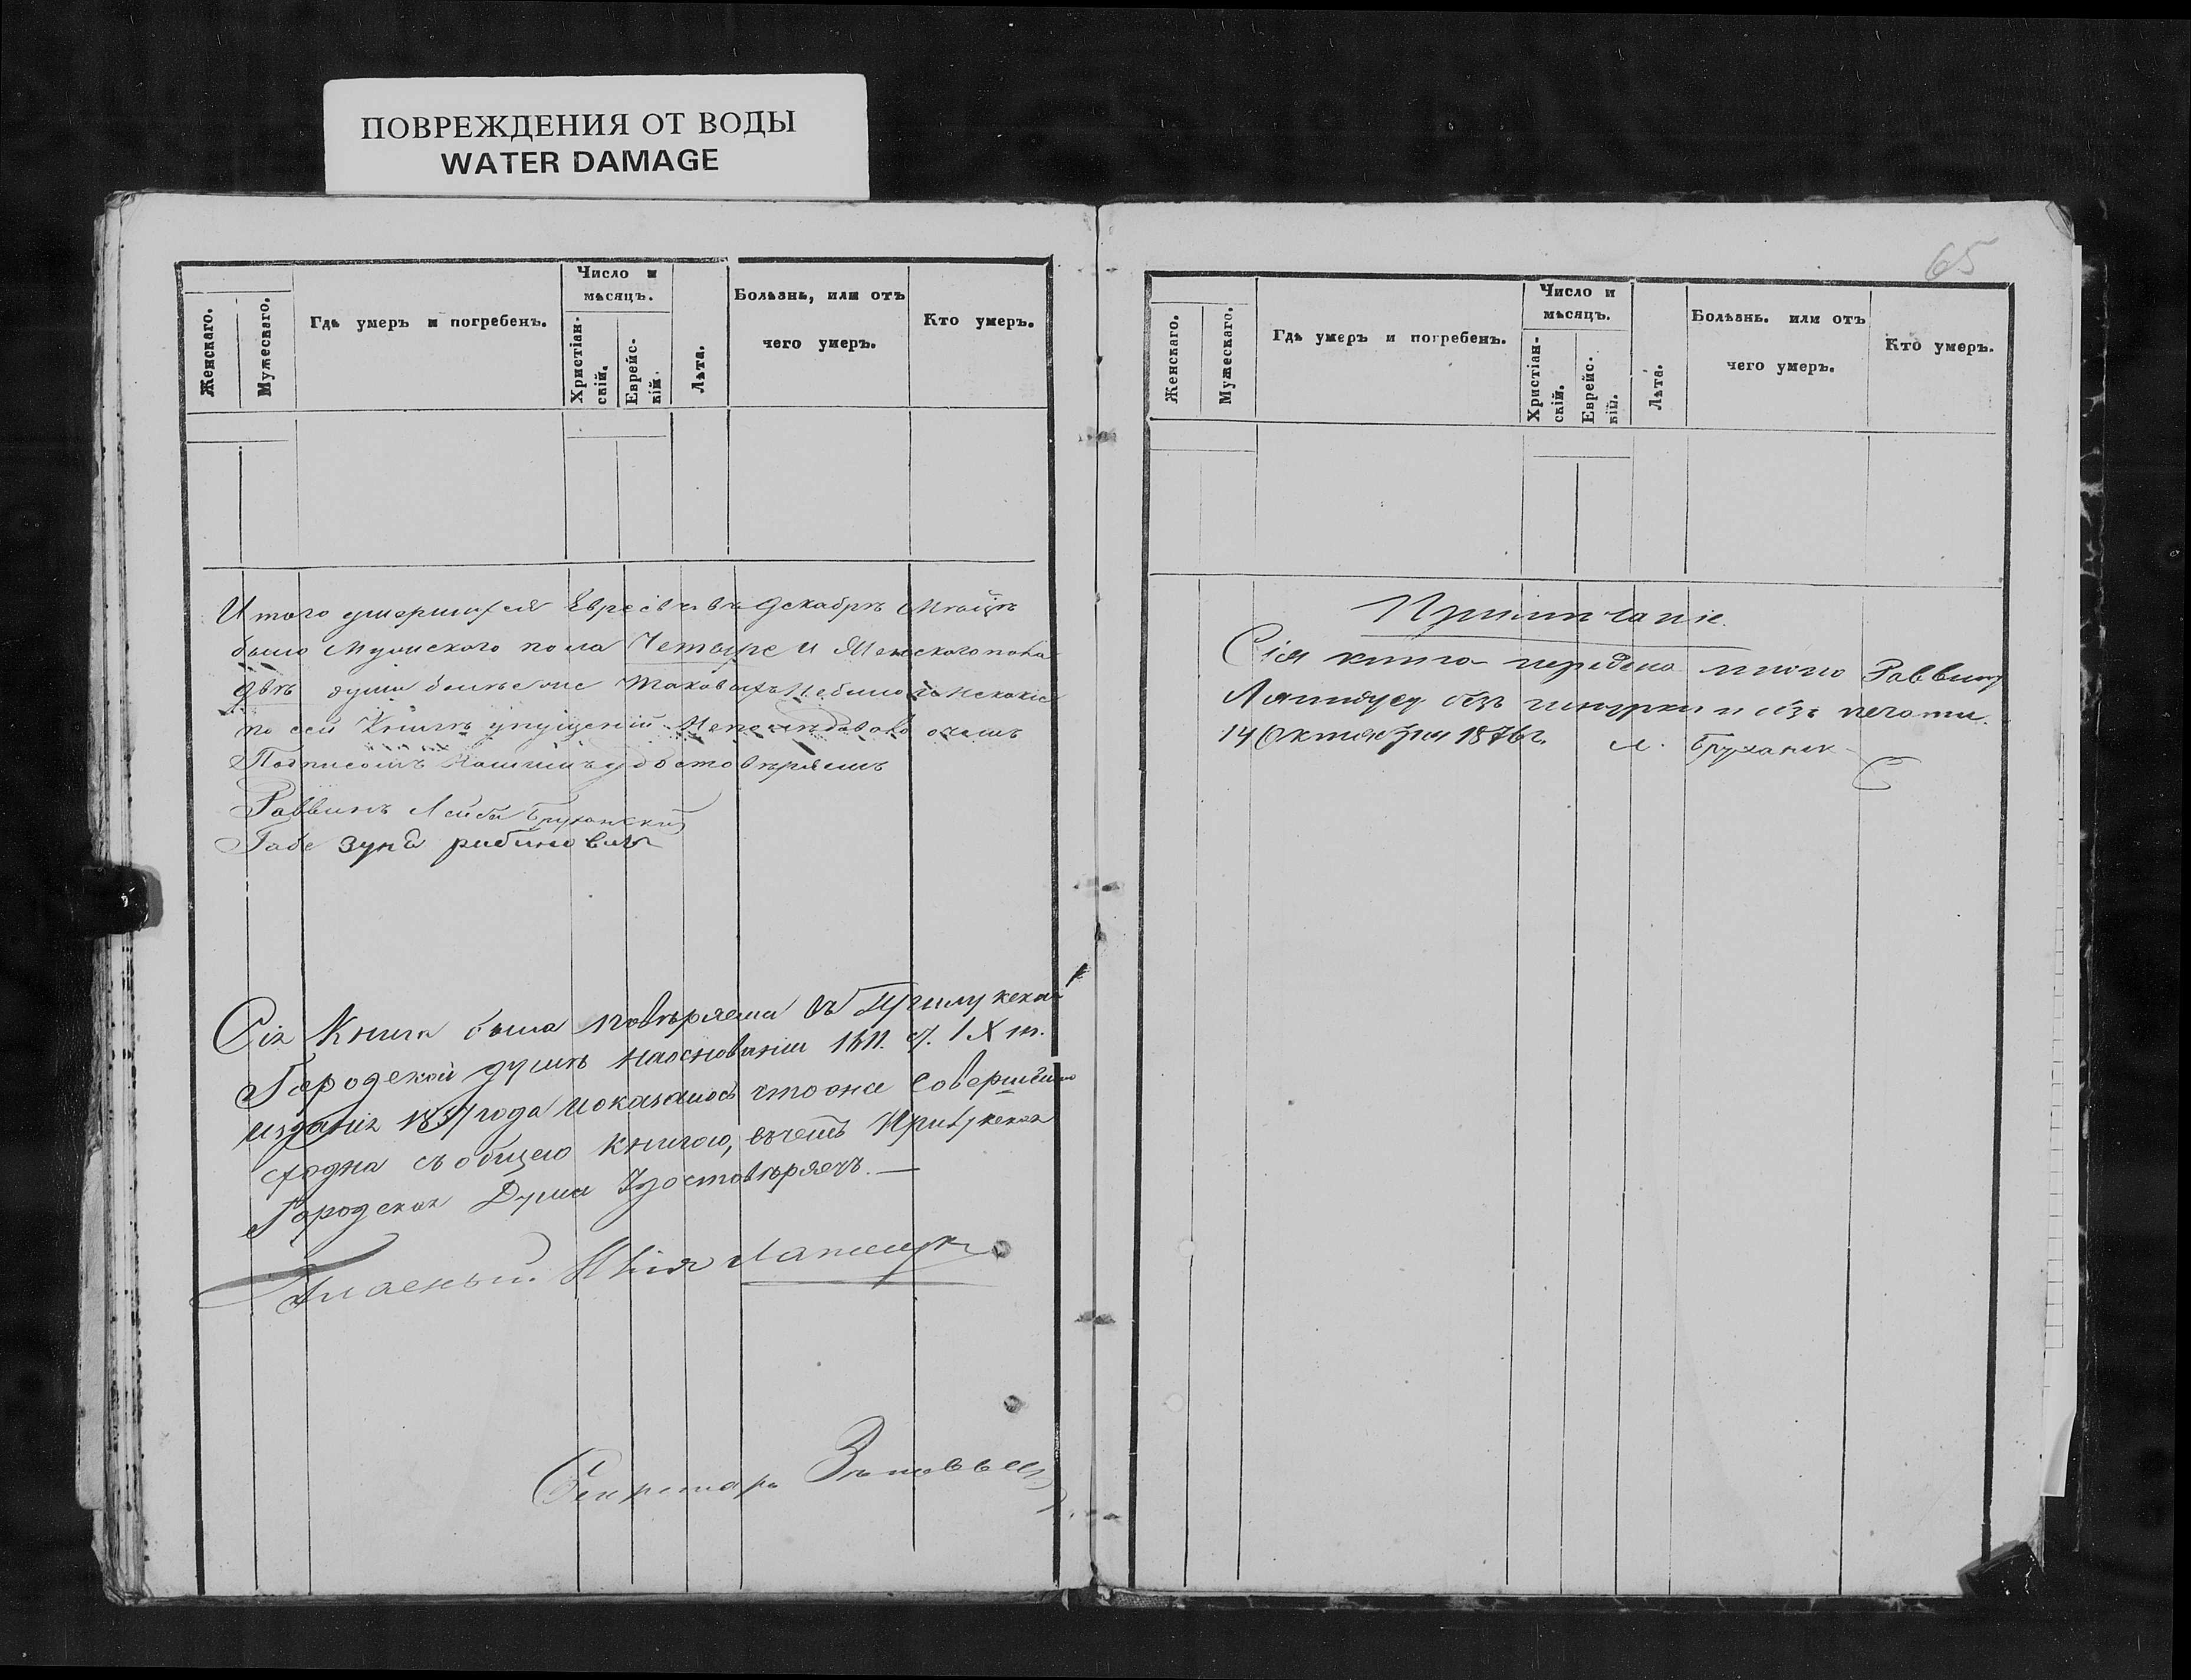 ПОВРЕЖДЕНИЯ ОТ ВОДЫ
WATER DAMAGE
65
Женскаго.
Мужескаго.
Гдѣ умеръ и погребенъ.
Число и мѣсяцъ.
Христіан-скій.
Еврейс-кій.
Лѣта.
Болѣзнь, или отъ чего умеръ.
Кто умеръ.
Итого умершихъ Евреевъ въ Декабрѣ Мѣсяцѣ
было Мужскаго пола Четыре и Женскаго пола
Двѣ души болѣе оне таковыхъ небыло и никакихъ
по сей Книгѣ упущеній непослѣдовало очемъ
Подписомъ Нашимъ удостовѣряемъ
Раввинъ Лейба Бруханскій
Габе Зунд рабинович
Сія Книга была повѣряема въ Прилукской
Городской думѣ наоснованіи IX т.
изданія 1857 года и оказалось что она совершенно
сходна съ общею книгою, въ чемъ Прилукская
Городская Дума Удостовѣряетъ. —
Гласный
Секретарь
Женскаго.
Мужескаго.
Гдѣ умеръ и погребенъ.
Число и мѣсяцъ.
Христіан-скій.
Еврейс-кій.
Лѣта.
Болѣзнь. или отъ чего умеръ.
Кто умеръ.
Примѣчаніе.
Сія книга передана мною Раввину
безъ шнурка и безъ печати.
14 Октября 1876 г. Л. Брухански